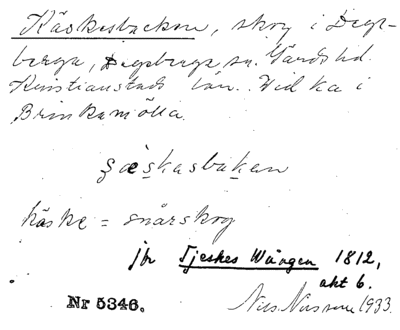 Käskesbacken, skog i Degeberga, Degeberga sn. Gärds hd.
Kristianstads län. Vid ka i
Brinkamölla.
ʂæskasbakan
käske = snårskog
jfr Tjeskes Wången 1812,
akt 6.
Nr 5346. Nils Nilsson 1933.